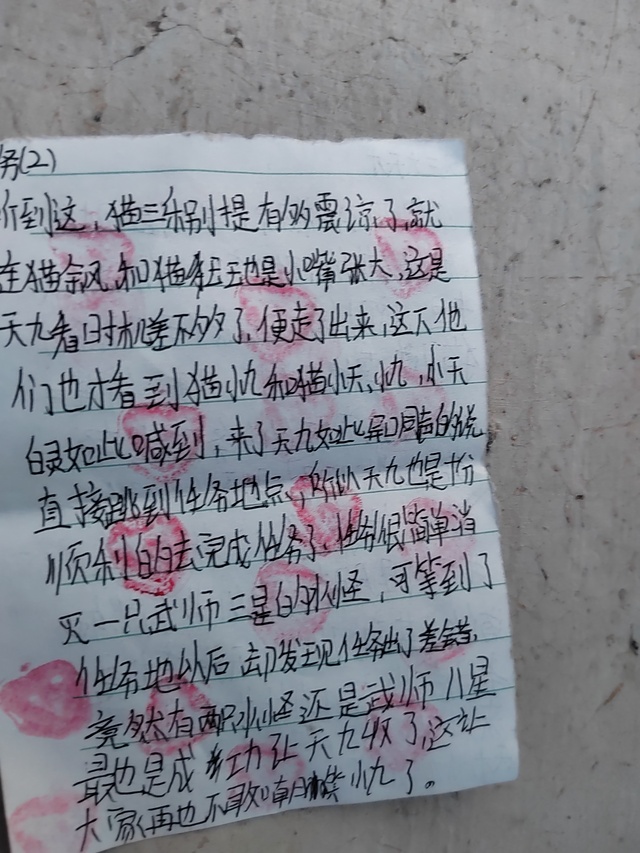 务(2)
听到这，猫三条别提有多震谅了，就
连猫余风和猫天也是小嘴张大，这是
天九看日时机差不多了，便走了出来，这下他
们也才看到猫小九和猫小天，小九，小天
白灵如此喊到，来了天九如此异口同声的说
直接跳到任务地点，所以天九也是十份
顺利的去完成任务了，任务很简单消
灭一只武师三星的水怪，可等到了
任务地以后却发现任务出了差错，
竟然有两只水怪还是武师八星
最也是成功让天九收了，这让
大家再也不敢嘲笑小九了。